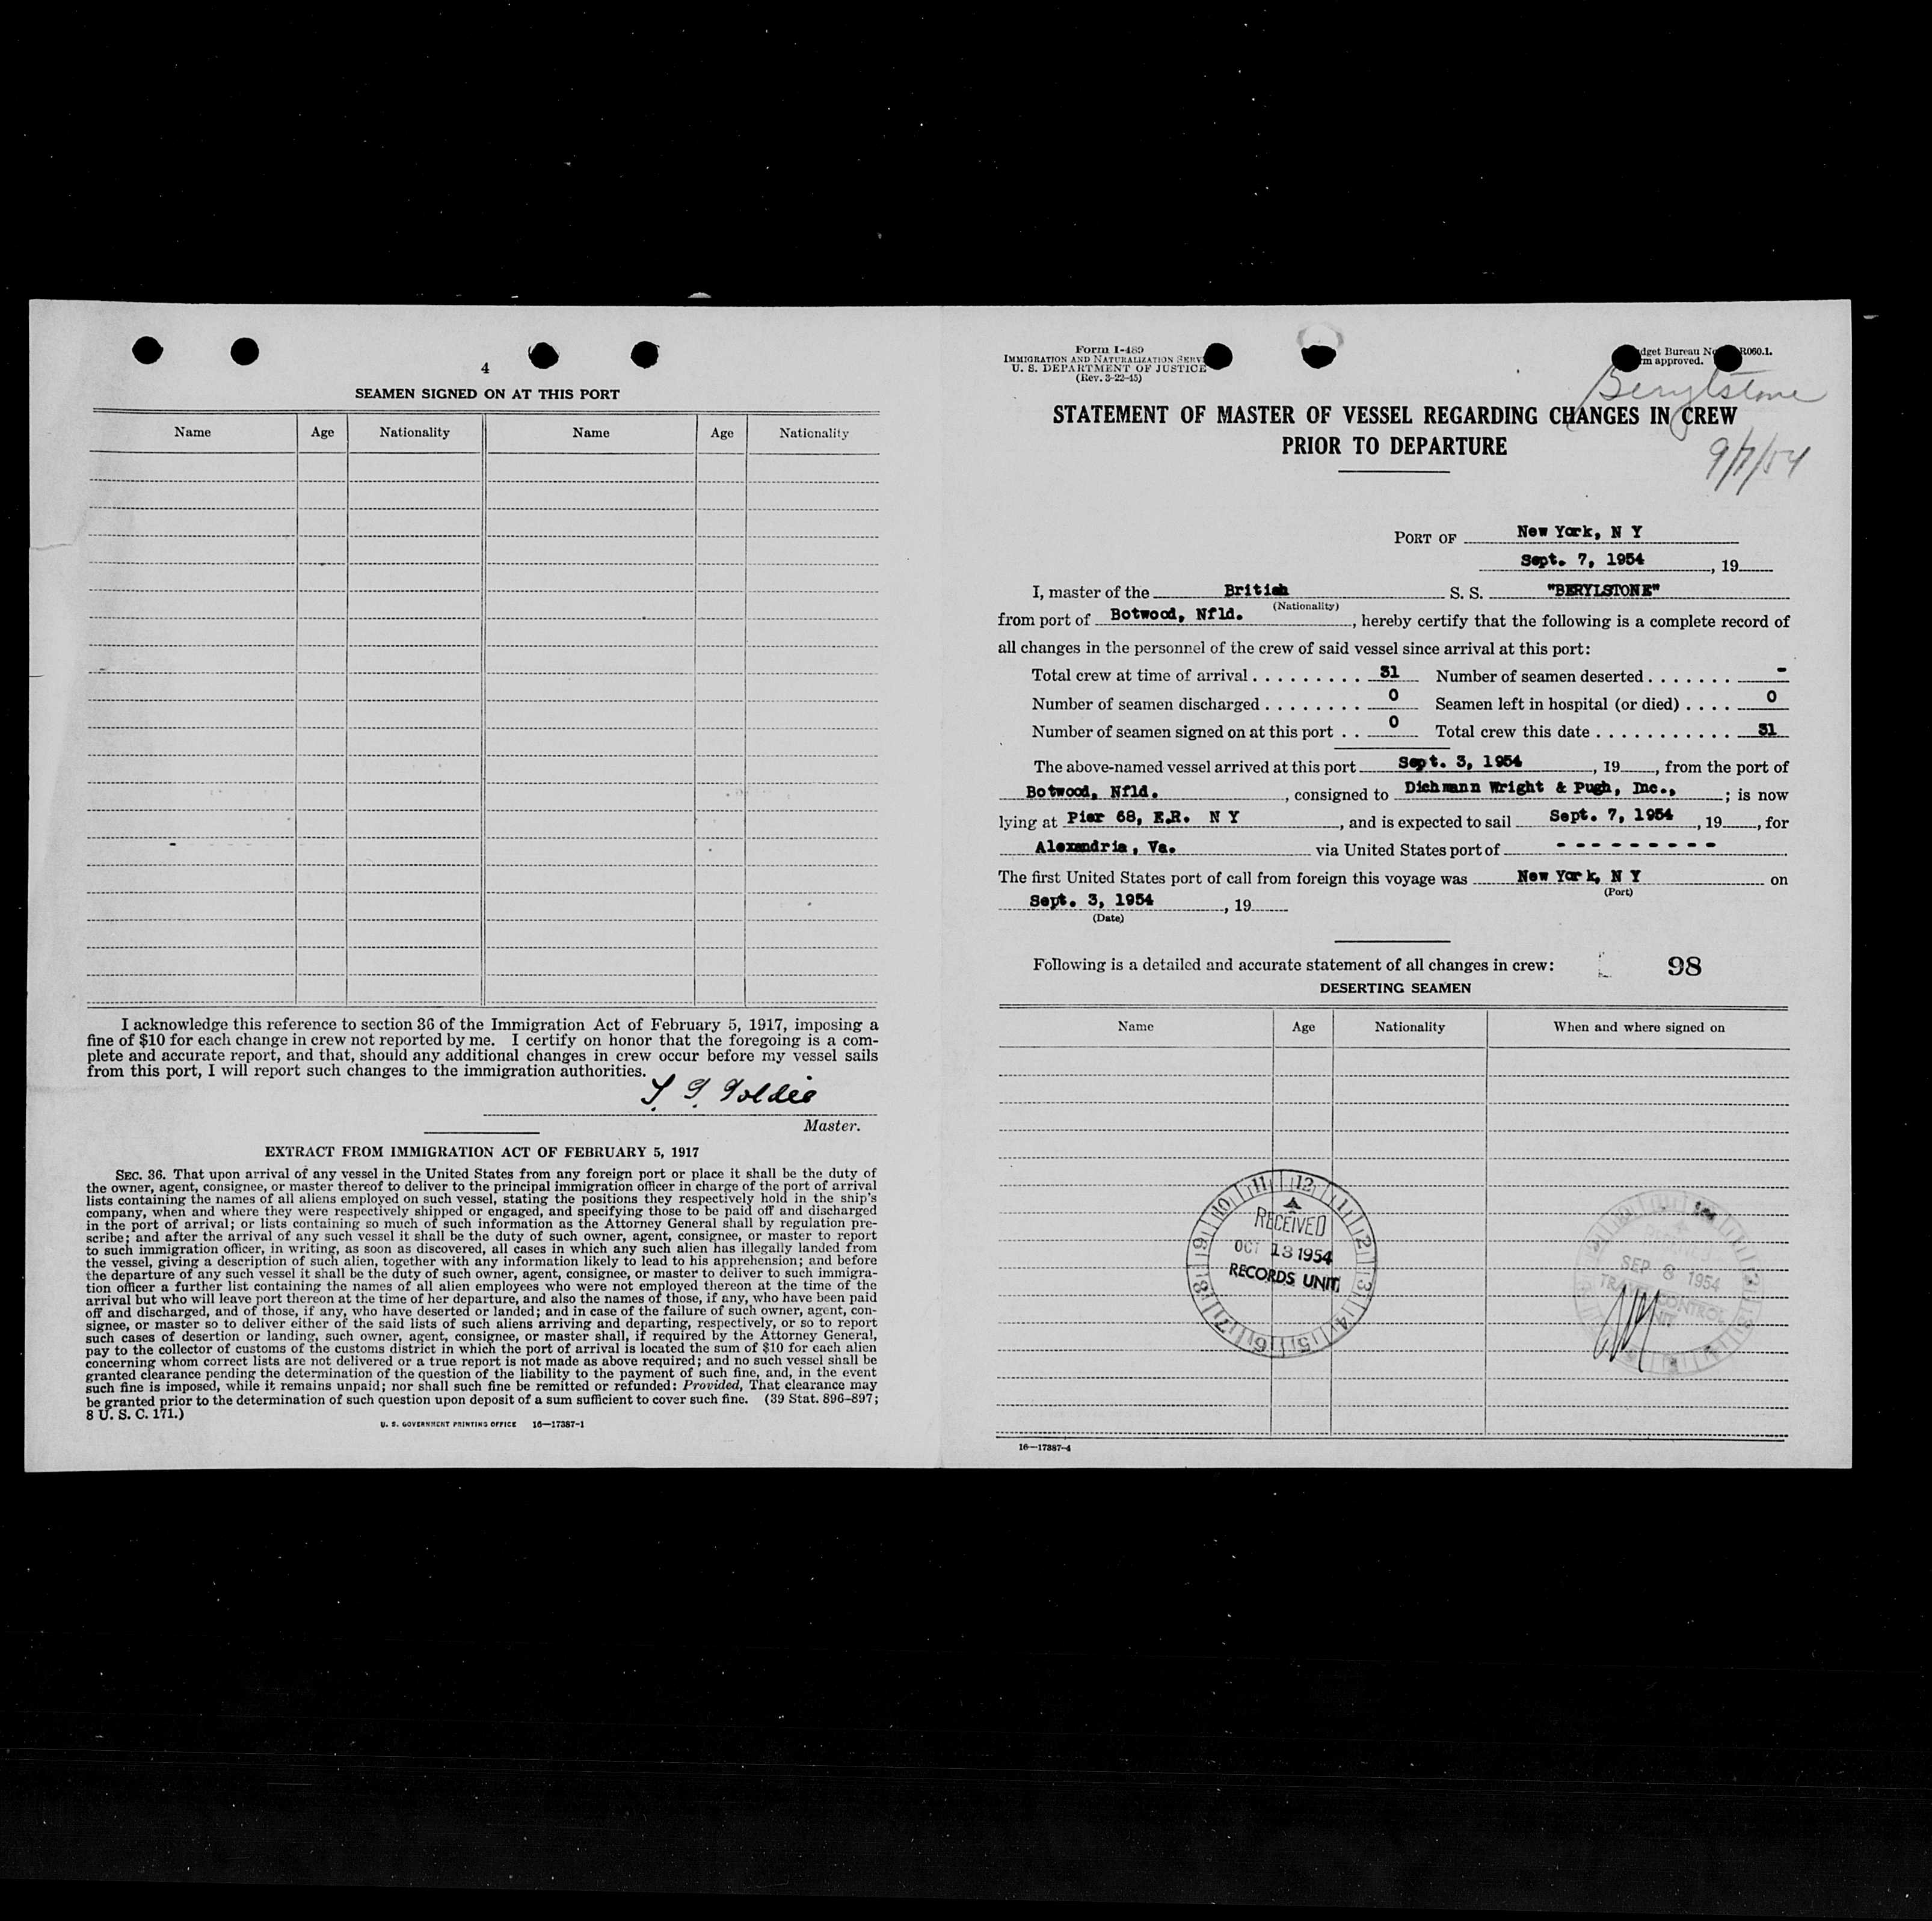 4
SEAMEN SIGNED ON AT THIS PORT
Name Age Nationality Name Age Nationality
I acknowledge this reference to section 36 of the Immigration Act of February 5, 1917, imposing a
fine of $10 for each change in crew not reported by me. I certify on honor that the foregoing is a com-
plete and accurate report, and that, should any additional changes in crew occur before my vessel sails
from this port, I will report such changes to the immigration authorities.
Goldie
Master.
EXTRACT FROM IMMIGRATION ACT OF FEBRUARY 5, 1917
SEC. 36. That upon arrival of any vessel in the United States from any foreign port or place it shall be the duty of
the owner, agent, consignee, or master thereof to deliver to the principal immigration officer in charge of the port of arrival
lists containing the names of all aliens employed on such vessel, stating the positions they respectively hold in the ship's
company, when and where they were respectively shipped or engaged, and specifying those to be paid off and discharged
in the port of arrival; or lists containing so much of such information as the Attorney General shall by regulation pre-
scribe; and after the arrival of any such vessel it shall be the duty of such owner, agent, consignee, or master to report
to such immigration officer, in writing, as soon as discovered, all cases in which any such alien has illegally landed from
the vessel, giving a description of such alien, together with any information likely to lead to his apprehension; and before
the departure of any such vessel it shall be the duty of such owner, agent, consignee, or master to deliver to such immigra-
tion officer a further list containing the names of all alien employees who were not employed thereon at the time of the
arrival but who will leave port thereon at the time of her departure, and also the names of those, if any, who have been paid
off and discharged, and of those, if any, who have deserted or landed; and in case of the failure of such owner, agent, con-
signee, or master so to deliver either of the said lists of such aliens arriving and departing, respectively, or so to report
such cases of desertion or landing, such owner, agent, consignee, or master shall, if required by the Attorney General,
pay to the collector of customs of the customs district in which the port of arrival is located the sum of $10 for each alien
concerning whom correct lists are not delivered or a true report is not made as above required; and no such vessel shall be
granted clearance pending the determination of the question of the liability to the payment of such fine, and, in the event
such fine is imposed, while it remains unpaid; nor shall such fine be remitted or refunded: Provided, That clearance may
be granted prior to the determination of such question upon deposit of a sum sufficient to cover such fine. (39 Stat. 896-897;
8 U. S. C. 171.)
U. S. GOVERNMENT PRINTING OFFICE 16—17387-1
Form I-489
IMMIGRATION AND NATURALIZATION SERV
U. S. DEPARTMENT OF JUSTICE
(Rev. 3-22-45)
dget Bureau No R060.1.
m approved.
Berylstone
STATEMENT OF MASTER OF VESSEL REGARDING CHANGES IN CREW
PRIOR TO DEPARTURE
9/7/54
PORT OF New York, N Y
Sept. 7, 1954, 19
I, master of the British S. S. "BERYLSTONE"
(Nationality)
from port of Botwood, Nfld., hereby certify that the following is a complete record of
all changes in the personnel of the crew of said vessel since arrival at this port:
Total crew at time of arrival . . . . . . . . . 31 Number of seamen deserted . . . . . . . -
Number of seamen discharged . . . . . . . . 0 Seamen left in hospital (or died) . . . . 0
Number of seamen signed on at this port . . 0 Total crew this date . . . . . . . . . . . 31
The above-named vessel arrived at this port Sept. 3, 1954, 19, from the port of
Botwood, Nfld., consigned to Dichmann Wright & Pugh, Inc.,; is now
lying at Pier 68, E.R. N Y, and is expected to sail Sept. 7, 1954, 19, for
Alexandria, Va. via United States port of - - - - - - - - -
The first United States port of call from foreign this voyage was New York, N Y on
(Port)
Sept. 3, 1954, 19
(Date)
Following is a detailed and accurate statement of all changes in crew: 98
DESERTING SEAMEN
Name Age Nationality When and where signed on
12 1 2 3 4 5 6 7 8 9 10 11
RECEIVED
OCT 13 1954
RECORDS UNIT
SEP 8 1954
CONTROL
16—17387-4